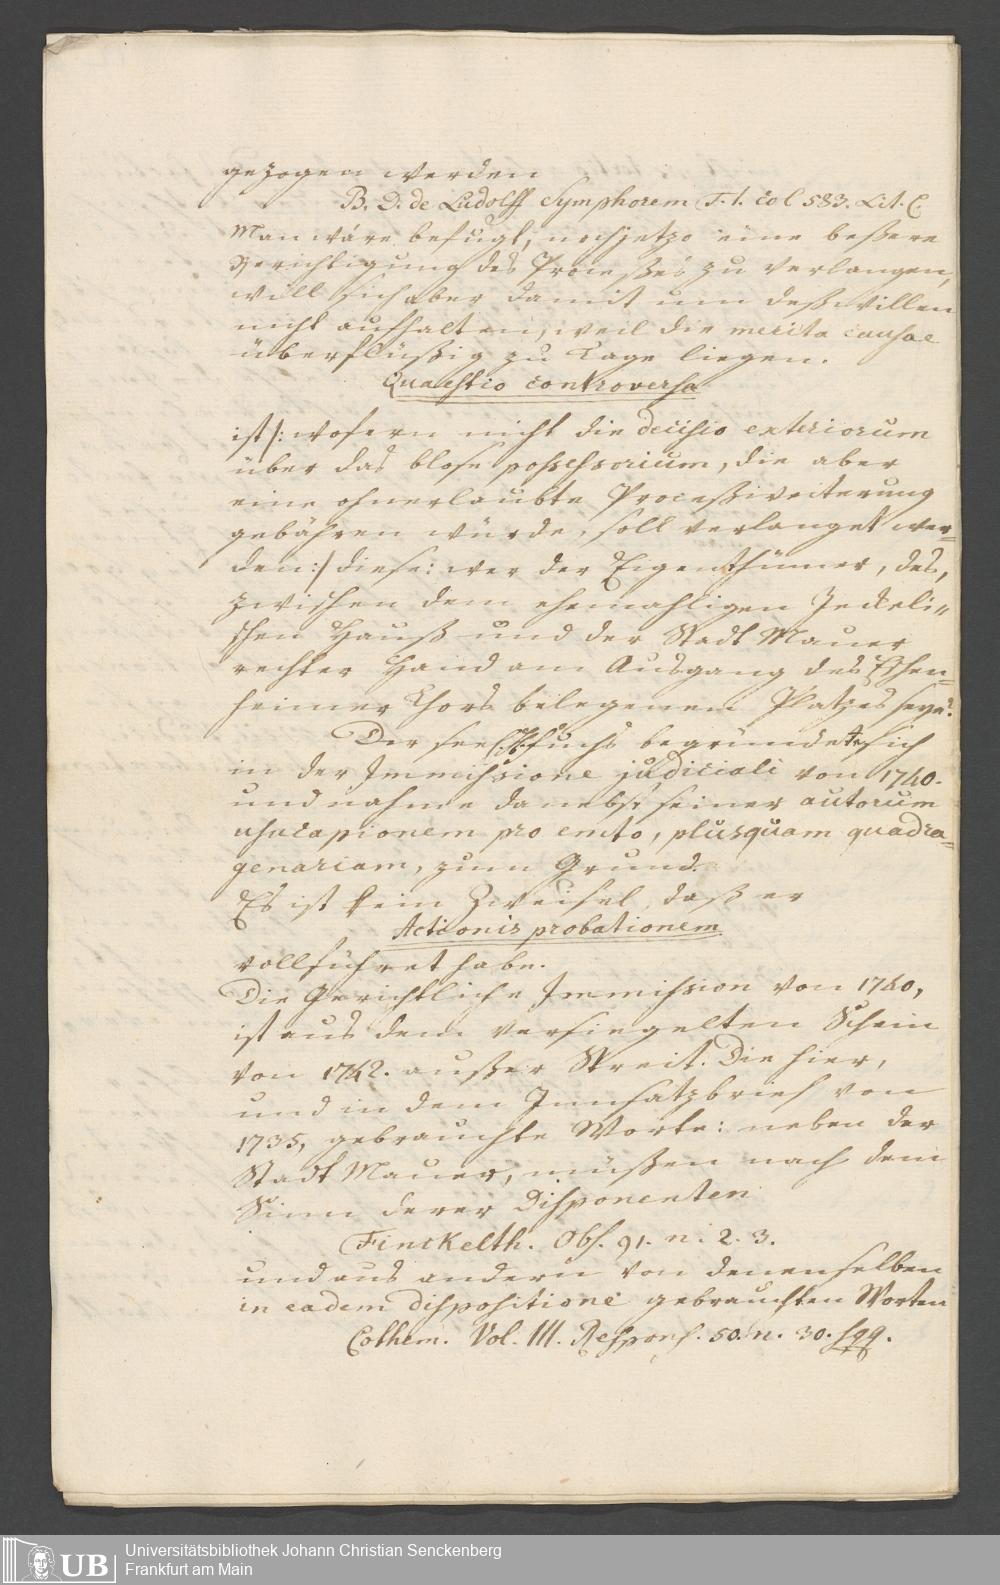 gezogen werden
B. D. de Ludolff Symphorem T. 1. col 583. Lit. C.
Man wäre befugt, noch jetzo eine beßere
Berichtigung des Proceßes zu verlangen,
will sich aber damit um deßwillen
nicht aufhalten, weil die merita causae
überflüßig zu Tage liegen.
Quaestio controversa
ist /: wofern nicht die decisio exteriorum
über das blose possessorium, die aber
eine ohnerlaubte Proceßweiterung
gebähren würde, soll verlanget wer=
den :/ diese: wer der Eigenthümer, des,
zwischen dem ehemahligen Jeckeli=
schen Hauß und der Stadt Mauer
rechter Hand am Ausgang des Eschen=
heimer Thors belegenen Platzes seye?
Der seel. Fuchs begründete sich
in der Immissione judiciali von 1740.
und nahme danebst seiner autorum
usucapionem pro emto, plusquam quadra=
genariam, zum Grund.
Es ist kein Zweifel, daß er
Actionis probationem
vollführet habe.
Die Gerichtliche Immission von 1740,
ist aus dem versiegelten Schein
von 1742. außer Streit. Die hier,
und in dem Innsatzbrief von
1735, gebrauchte Worte: neben der
Stadt Mauer, müßen nach dem
Sinn derer Disponenten
Finckelth. Obs. 91. n. 2. 3.
und aus andern von denenselben
in eadem dispositione gebrauchten Worten
Cothem. Vol. III. Respons. 50. n. 30. sqq.
UB
Universitätsbibliothek Johann Christian Senckenberg
Frankfurt am Main